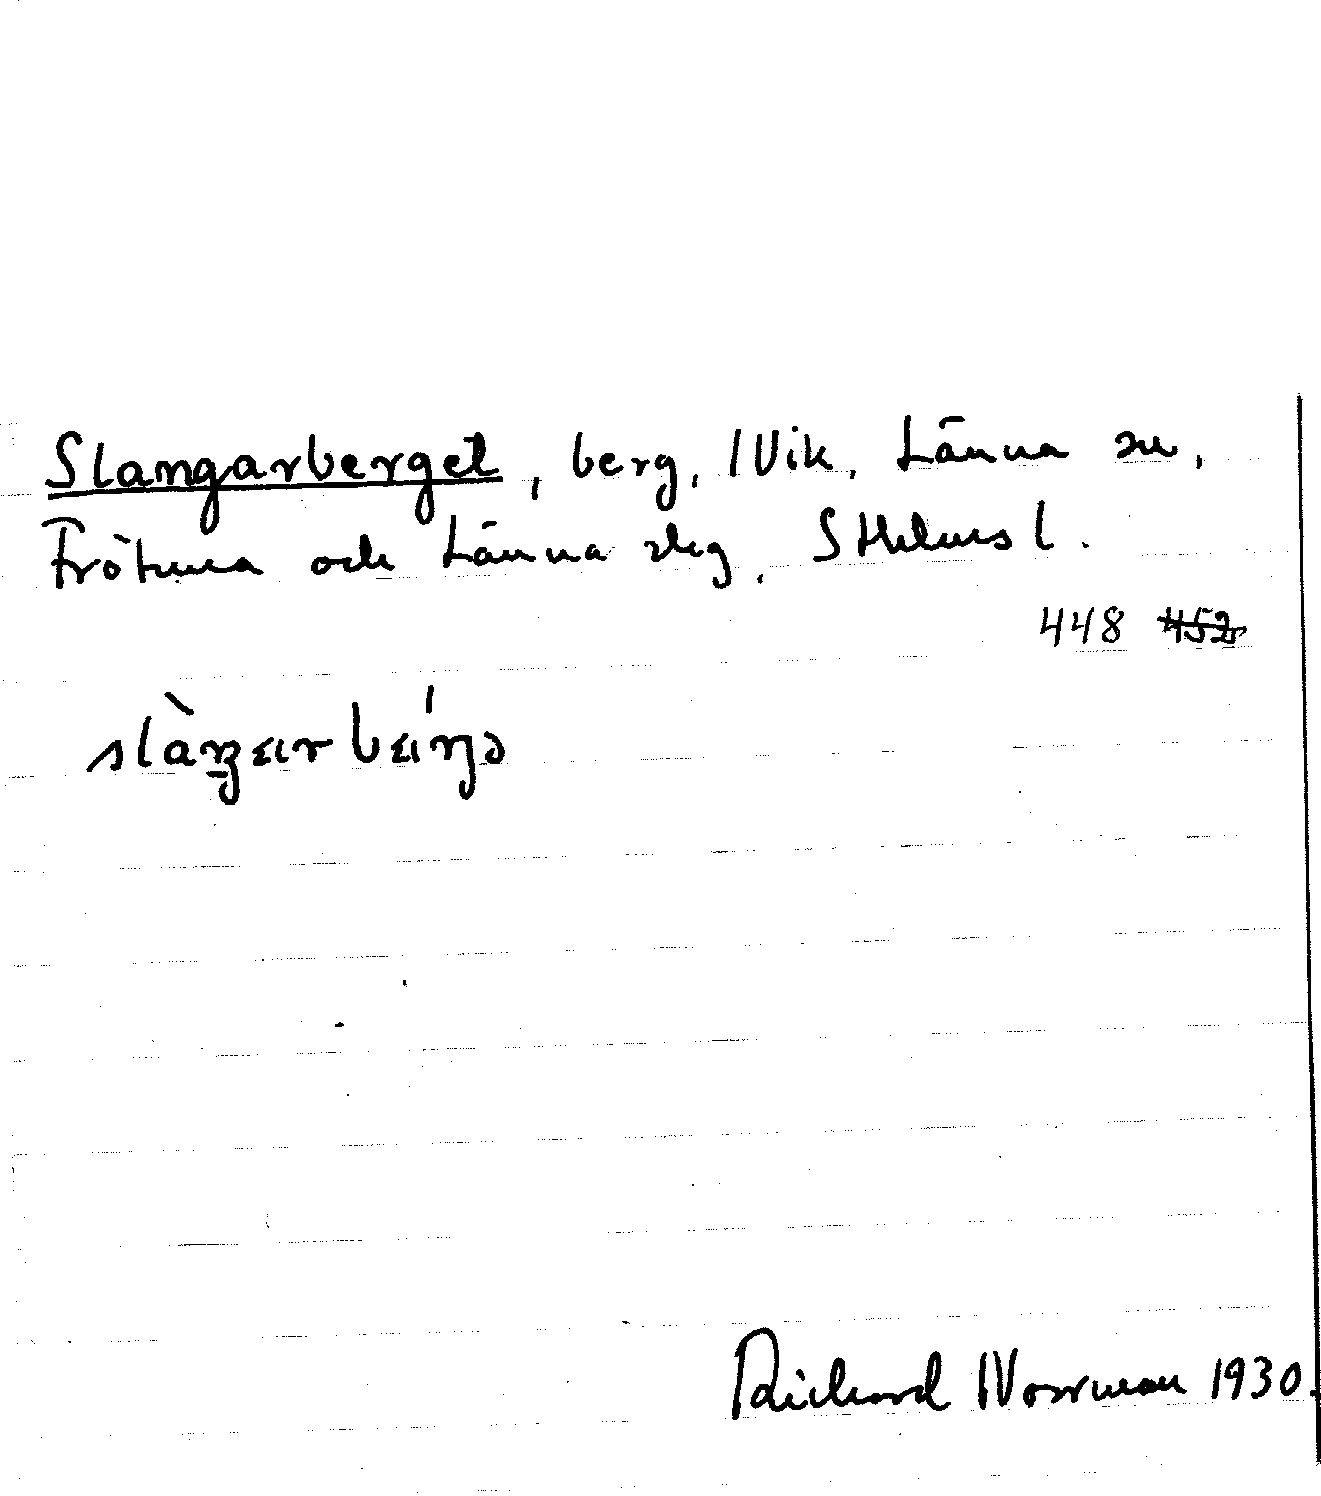 Slangarberget, berg, Vik, Länna sn,
Frötuna och Länna slg, Sthlms l.
448 452
Richard Norrman 1930.